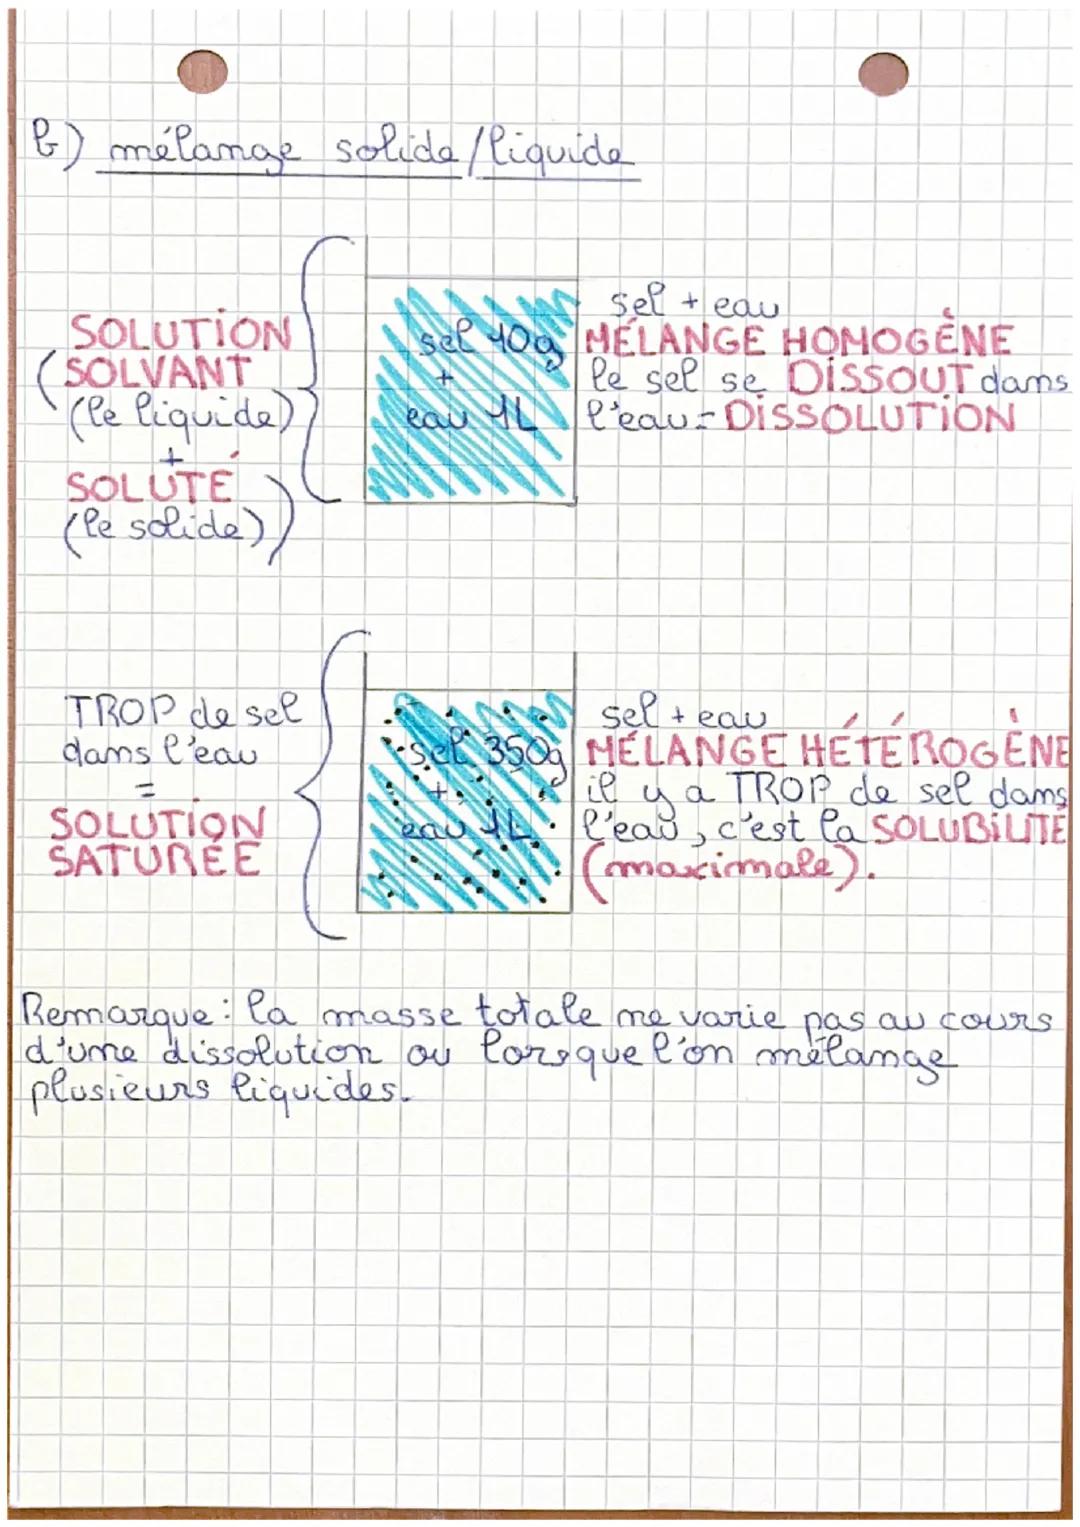 b) mélange solide/liquide
SOLUTION
(SOLVANT
(le liquide)
+
SOLUTÉ
(le solide))
sel 10g
+
eau 1L
sel + eau
MÉLANGE HOMOGÈNE
le sel se DISSOUT dans
l'eau = DISSOLUTION
TROP de sel
dans l'eau
=
SOLUTION
SATURÉE
sel 350g
+
eau 1L
sel + eau
MÉLANGE HÉTÉROGÈNE
il y a TROP de sel dans
l'eau, c'est la SOLUBILITÉ
(maximale).
Remarque : la masse totale ne varie pas au cours
d'une dissolution ou lorsque l'on mélange
plusieurs liquides.